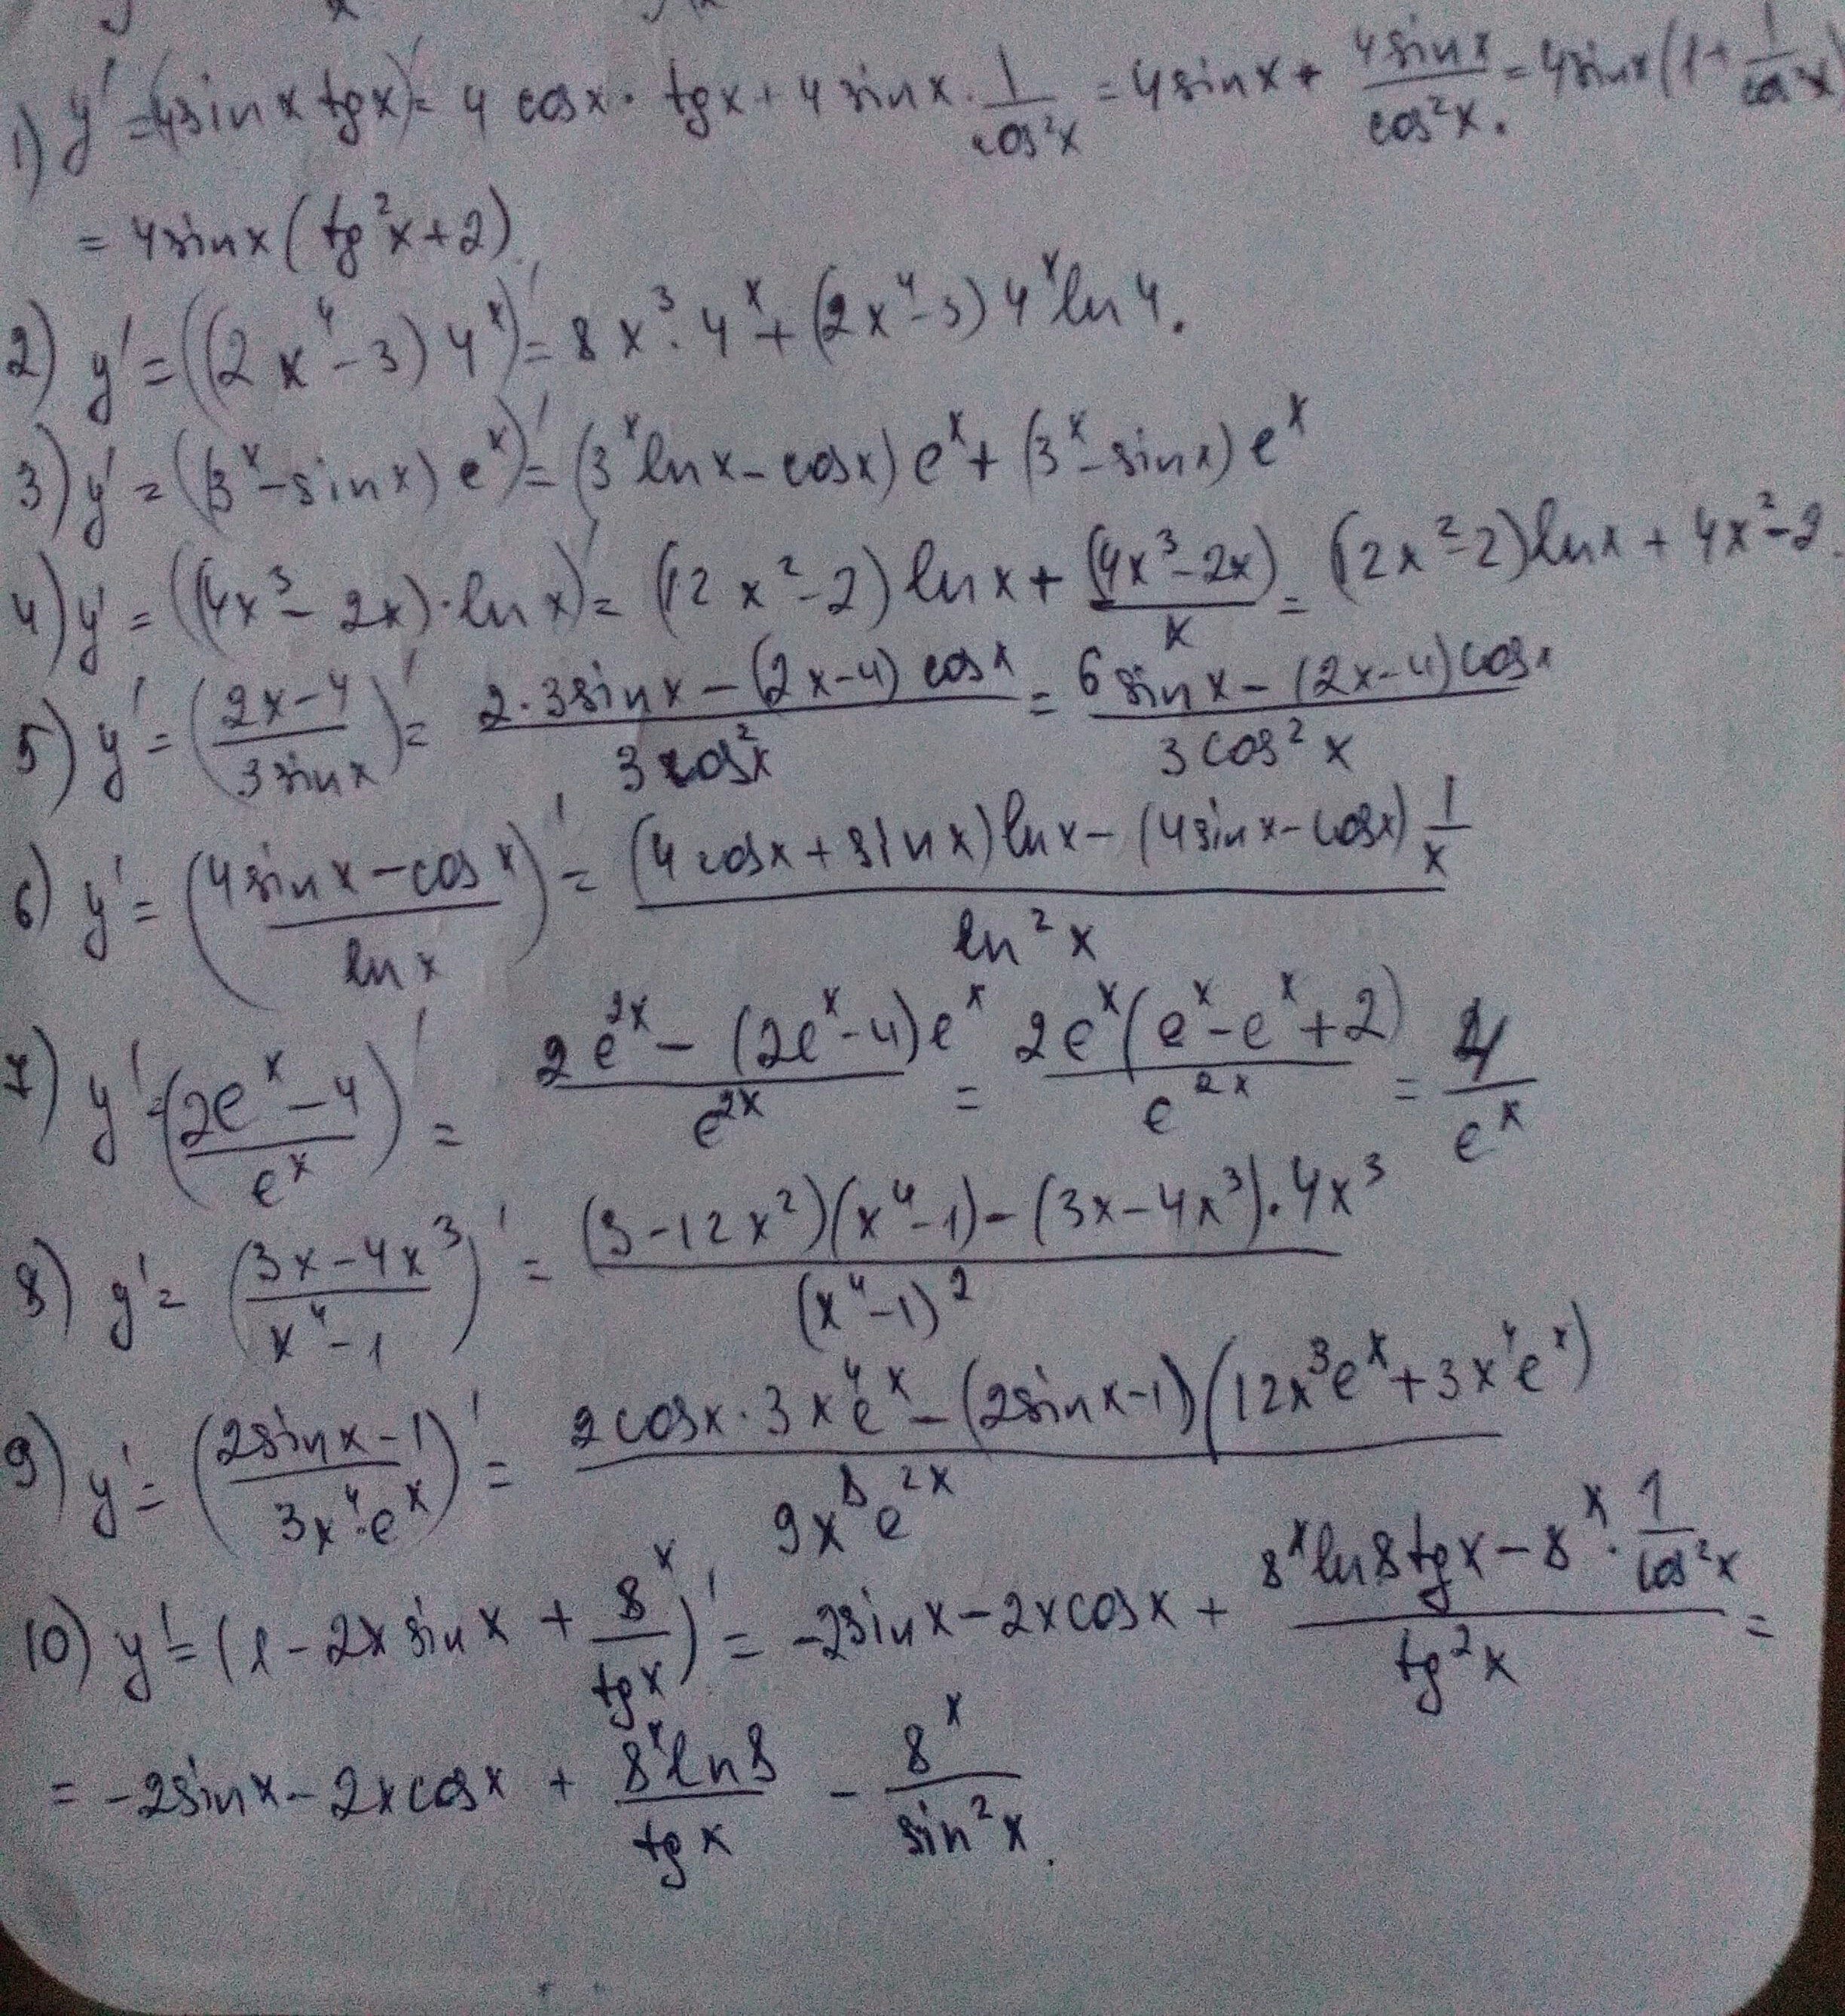 1) y' = (4sinx tgx)' = 4 cosx · tgx + 4 sinx · 1/cos²x = 4sinx + 4sinx/cos²x. = 4sinx(1+ 1/cos²x)
= 4sinx (tg²x+2)
2) y' = ((2x⁴-3) 4ˣ)' = 8x³·4ˣ + (2x⁴-3) 4ˣ ln 4.
3) y' = ((3ˣ-sinx) eˣ)' = (3ˣ lnx - cosx) eˣ + (3ˣ-sinx) eˣ
4) y' = ((4x³- 2x)·ln x)' = (12x²-2) ln x + (4x³-2x)/x = (12x²-2)lnx + 4x²-2
5) y' = ((2x-4)/(3sinx))' = (2·3sinx - (2x-4) cosx)/(3cos²x) = (6sinx - (2x-4)cosx)/(3cos²x)
6) y' = ((4sinx - cosx)/(ln x))' = ((4cosx + sinx)lnx - (4sinx - cosx) 1/x)/(ln²x)
7) y' = ((2eˣ-4)/eˣ)' = (2e²ˣ - (2eˣ-4)eˣ)/e²ˣ = 2eˣ(eˣ-eˣ+2)/e²ˣ = 4/eˣ
8) y' = ((3x-4x³)/(x⁴-1))' = ((3-12x²)(x⁴-1) - (3x-4x³)·4x³)/(x⁴-1)²
9) y' = ((2sinx-1)/(3x⁴·eˣ))' = (2cosx·3x⁴eˣ - (2sinx-1)(12x³eˣ+3x⁴eˣ))/(9x⁸e²ˣ)
10) y' = (1 - 2x sinx + 8ˣ/tgx)' = -2sinx - 2xcosx + (8ˣln8 tgx - 8ˣ · 1/cos²x)/tg²x =
= -2sinx - 2xcosx + 8ˣln8/tgx - 8ˣ/sin²x.